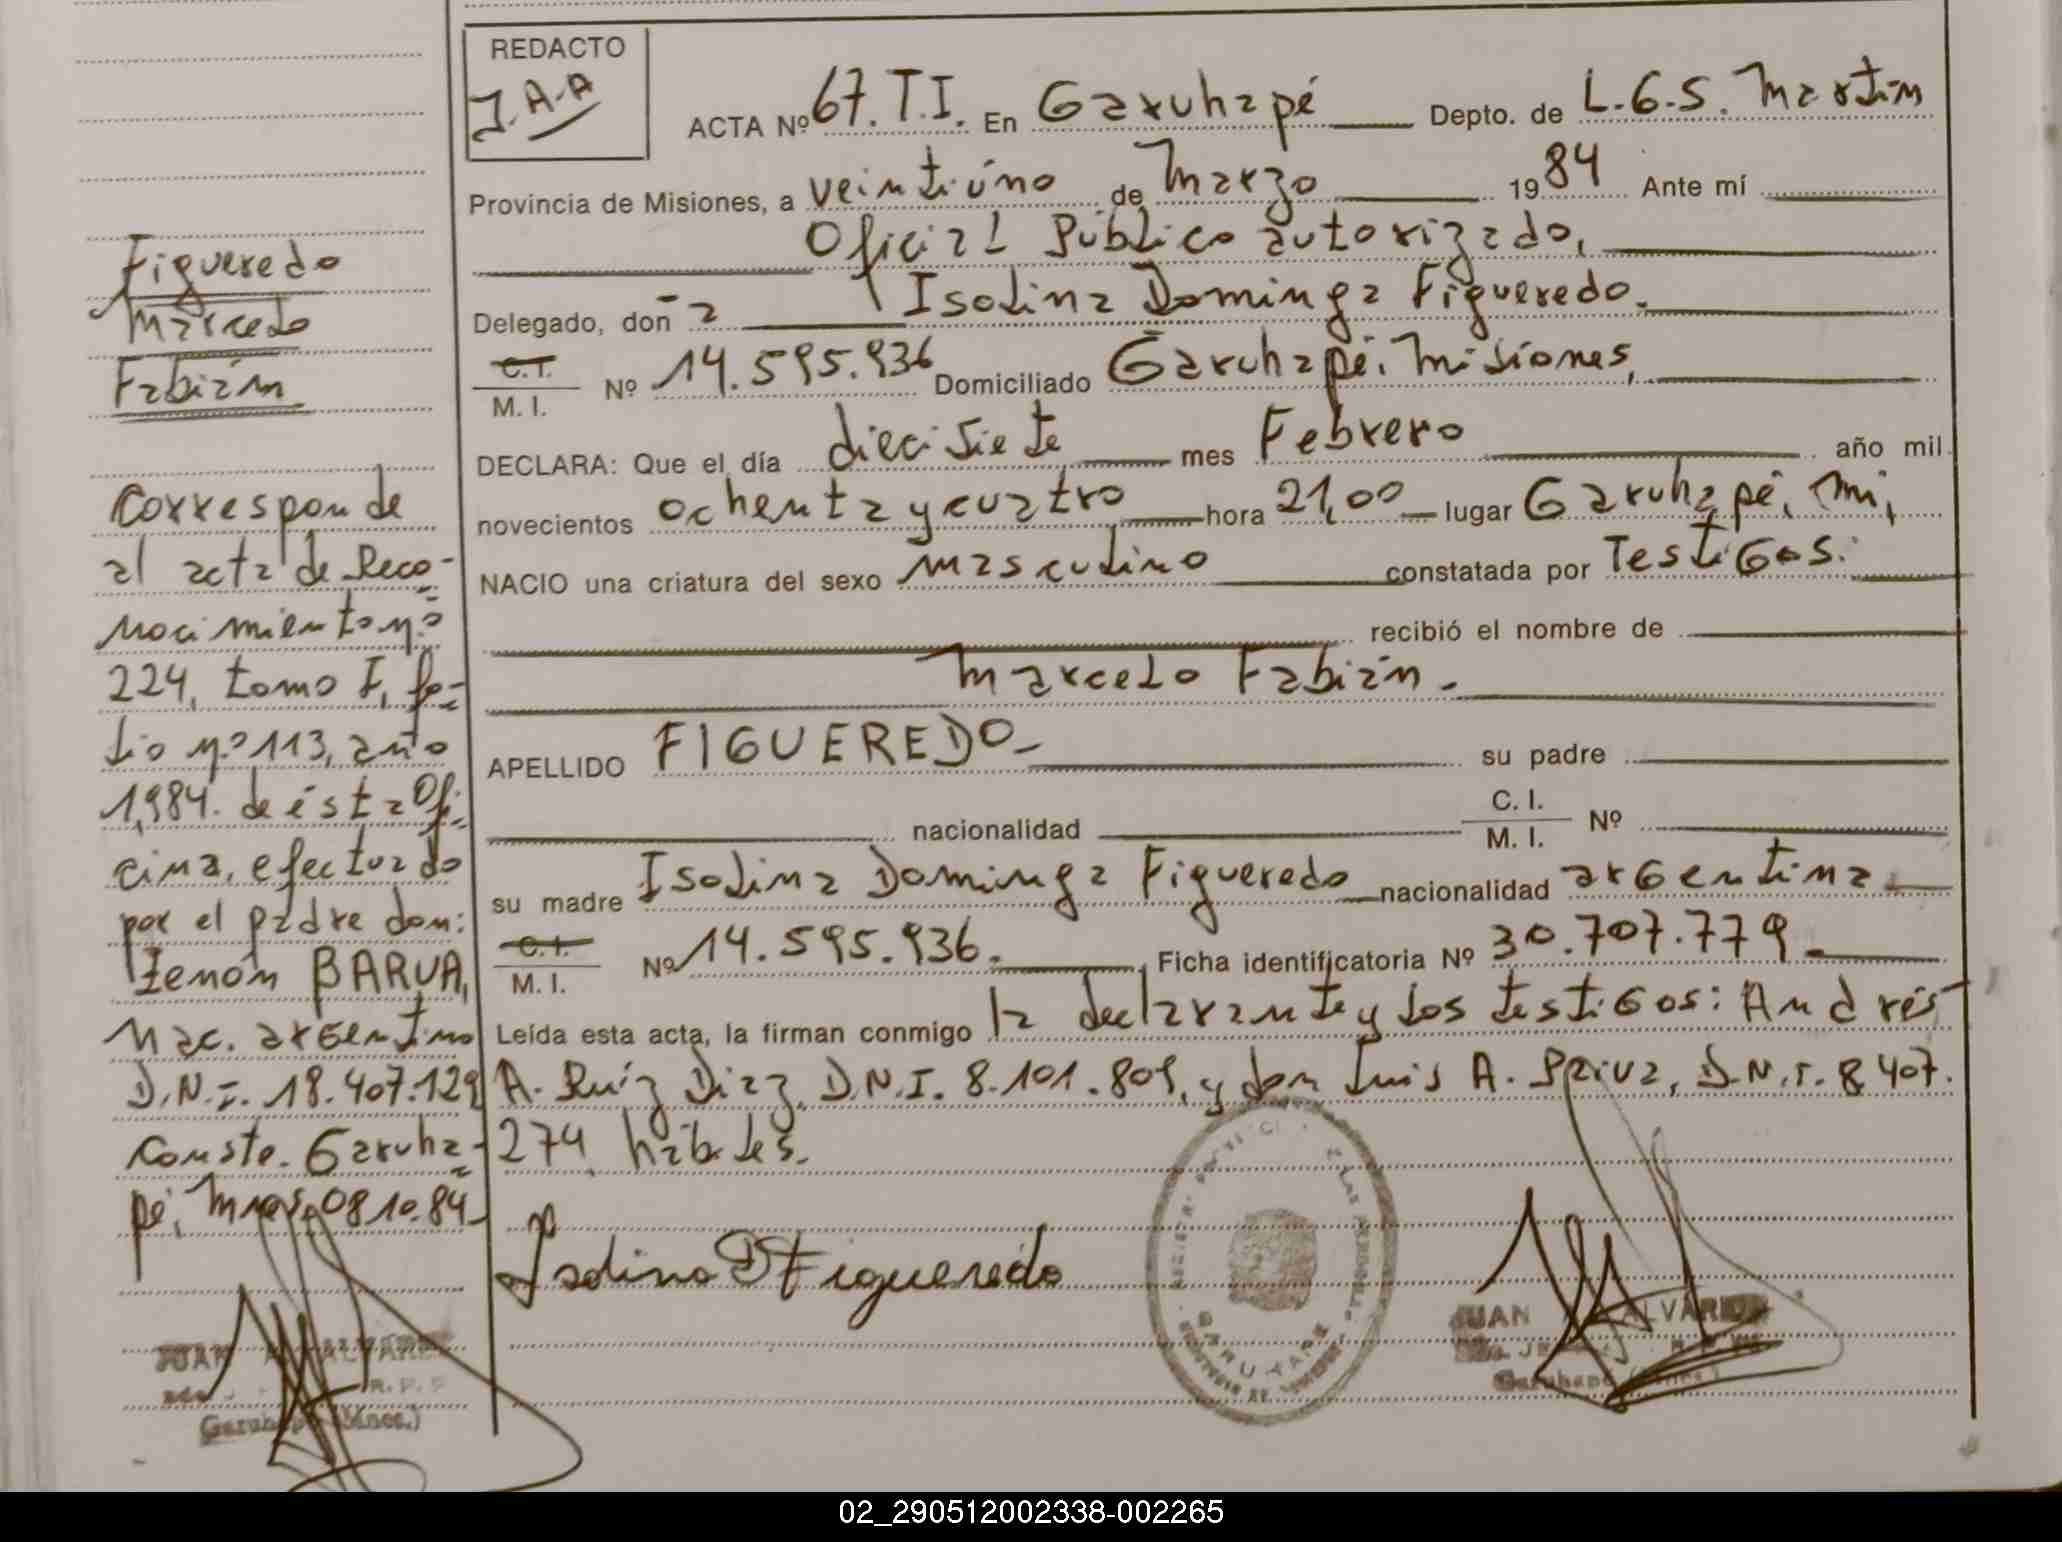 REDACTO
J.A.A
ACTA Nº 67.T.I. En Garuhapé Depto. de L.G.S. Martín
Provincia de Misiones, a veintiúno de Marzo 1984 Ante mí
Oficial Público autorizado,
Delegado, don ̃a Isolina Dominga Figueredo.
C.I.
M. I. Nº 14.595.936 Domiciliado Garuhapé, Misiones,
DECLARA: Que el día diecisiete mes Febrero año mil
novecientos ochenta y cuatro hora 21,00 lugar Garuhapé, Mi,
NACIO una criatura del sexo masculino constatada por Testigos.
recibió el nombre de
Marcelo Fabián.
APELLIDO FIGUEREDO su padre
nacionalidad C. I. M. I. Nº
su madre Isolina Dominga Figueredo nacionalidad argentina
C.I.
M. I. Nº 14.595.936. Ficha identificatoria Nº 30.707.779.
Leída esta acta, la firman conmigo la declarante y los testigos: Andrés
A. Ruíz Diaz, D.N.I. 8.101.809, y don Luis A. D.N.I. 8.407.
274, hábiles.
Isolina D Figueredo
GARUHAPE
JUAN ALVAREZ
Garuhapé (Mnes.)
Figueredo
Marcelo
Fabián
Corresponde
al acta de Reco-
nocimiento nº
224, tomo I, fo-
lio nº 113, año
1,984. de ésta Ofi-
cina, efectuado
por el padre don:
Zenón BARUA,
Nac. argentino
D.N.I. 18.407.129
Conste. Garuha-
pé, Mnes. 08.10.84
JUAN ALVAREZ
R.P.P
Garuhapé (Mnes.)
02_290512002338-002265